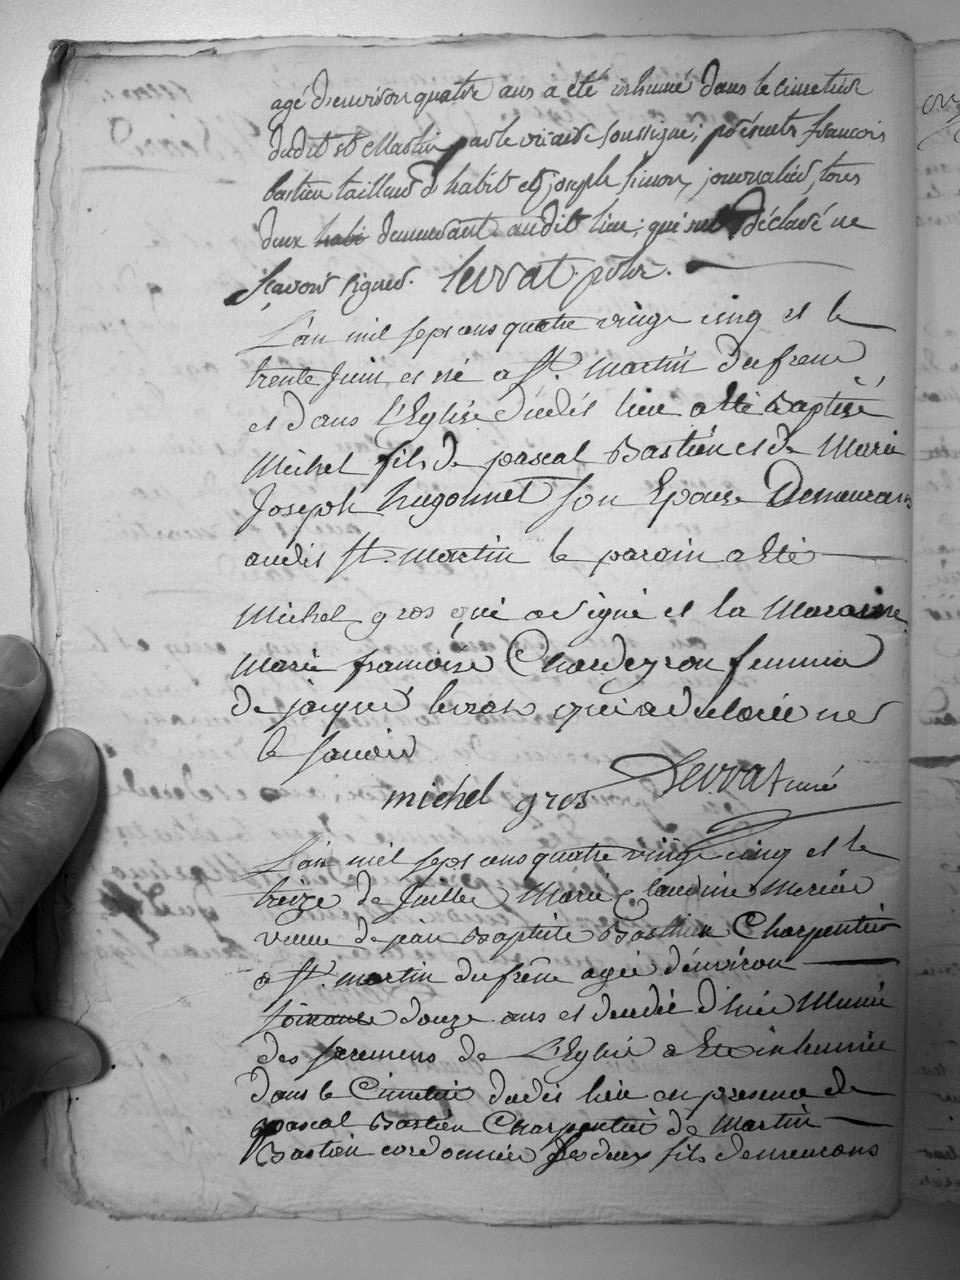 agé d'environ quatre ans a été inhumé dans le cimetiere
dudit st Martin par le vicaire soussigné, présents francois
bastien tailleur d'habit et joseph simon, journalier, tous
deux habi demeurant audit lieu, qui ont déclaré ne
scavoir signer. Servat
L'an mil sept cens quatre vingt cinq et le
trente Juin, est né a St. martin du frene
et dans l'Eglise dudit lieu a été Baptisé
Michel fils de pascal Bastien et de Marie
Joseph hugonnet son Epouse Demeurans
audit St. martin le parain a Eté
Michel gros qui a signé et la Maraine
Marie francoise Chardeyron femme
de jacque qui a declarée ne
le savoir
michel gros Servat curé
L'an mil sept cens quatre vingt cinq et le
treize de Juillet Marie Claudine Mercier
veuve de jean Baptiste Basthien Charpentier
a St. martin du frêne agée d'environ
soixante douze ans et decedée d'hier Munie
des sacremens de L'Eglise a Eté inhumée
dans le Cimetiere dudit lieu en presence de
pascal Bastien Charpentier de Martin
Bastien cordonnier ses deux fils demeurans